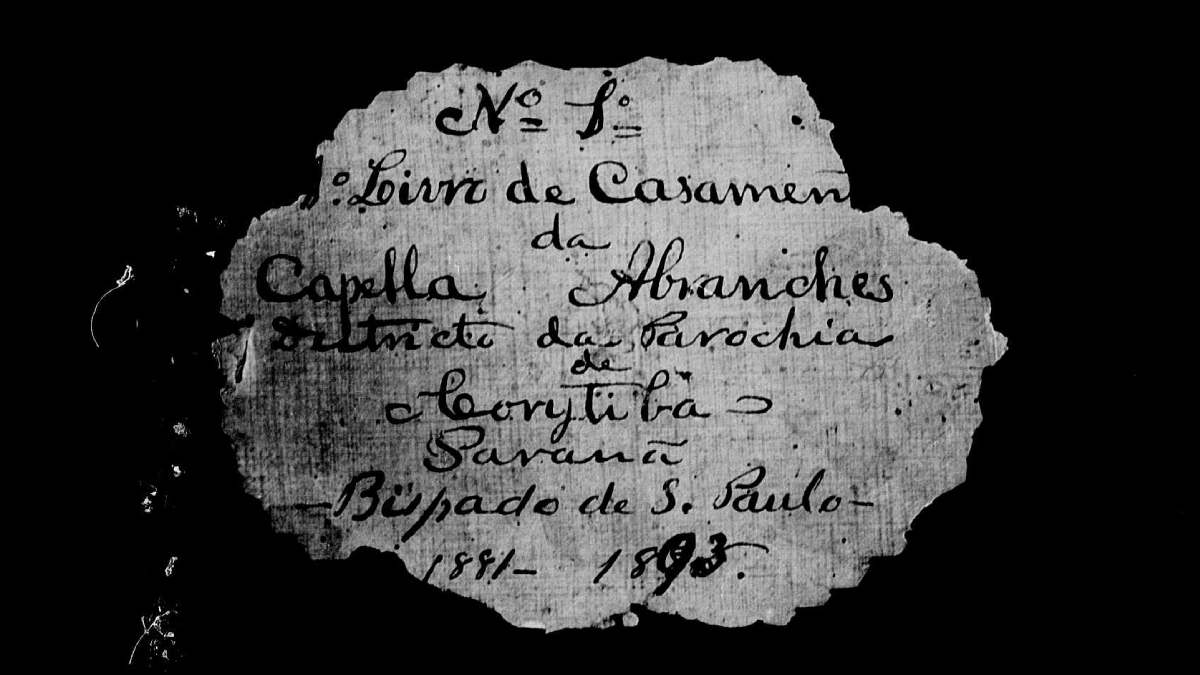 Nº 1º
1º Livro de Casamen
da
Capella Abranches
Districto da Parochia
de
Corytiba
Paraná
— Bispado de S. Paulo —
1881 — 1893.